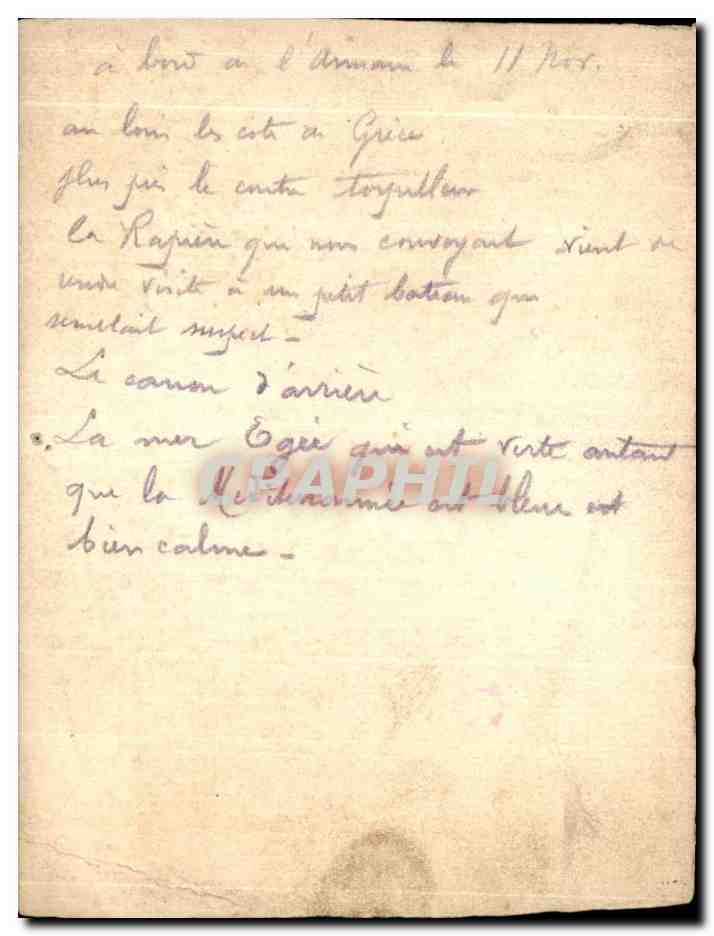 à bord de l'Annam le 11 Nov.
au loin les cote de Grèce
plus près le contre torpilleur
la Rapière qui nous convoyait vient de
rendre visite à un petit bateau qui
semblait suspect -
Le canon d'arrière
La mer Egée qui est verte autant
que la Mediterranée est bleue est
bien calme -
CPAPHIL